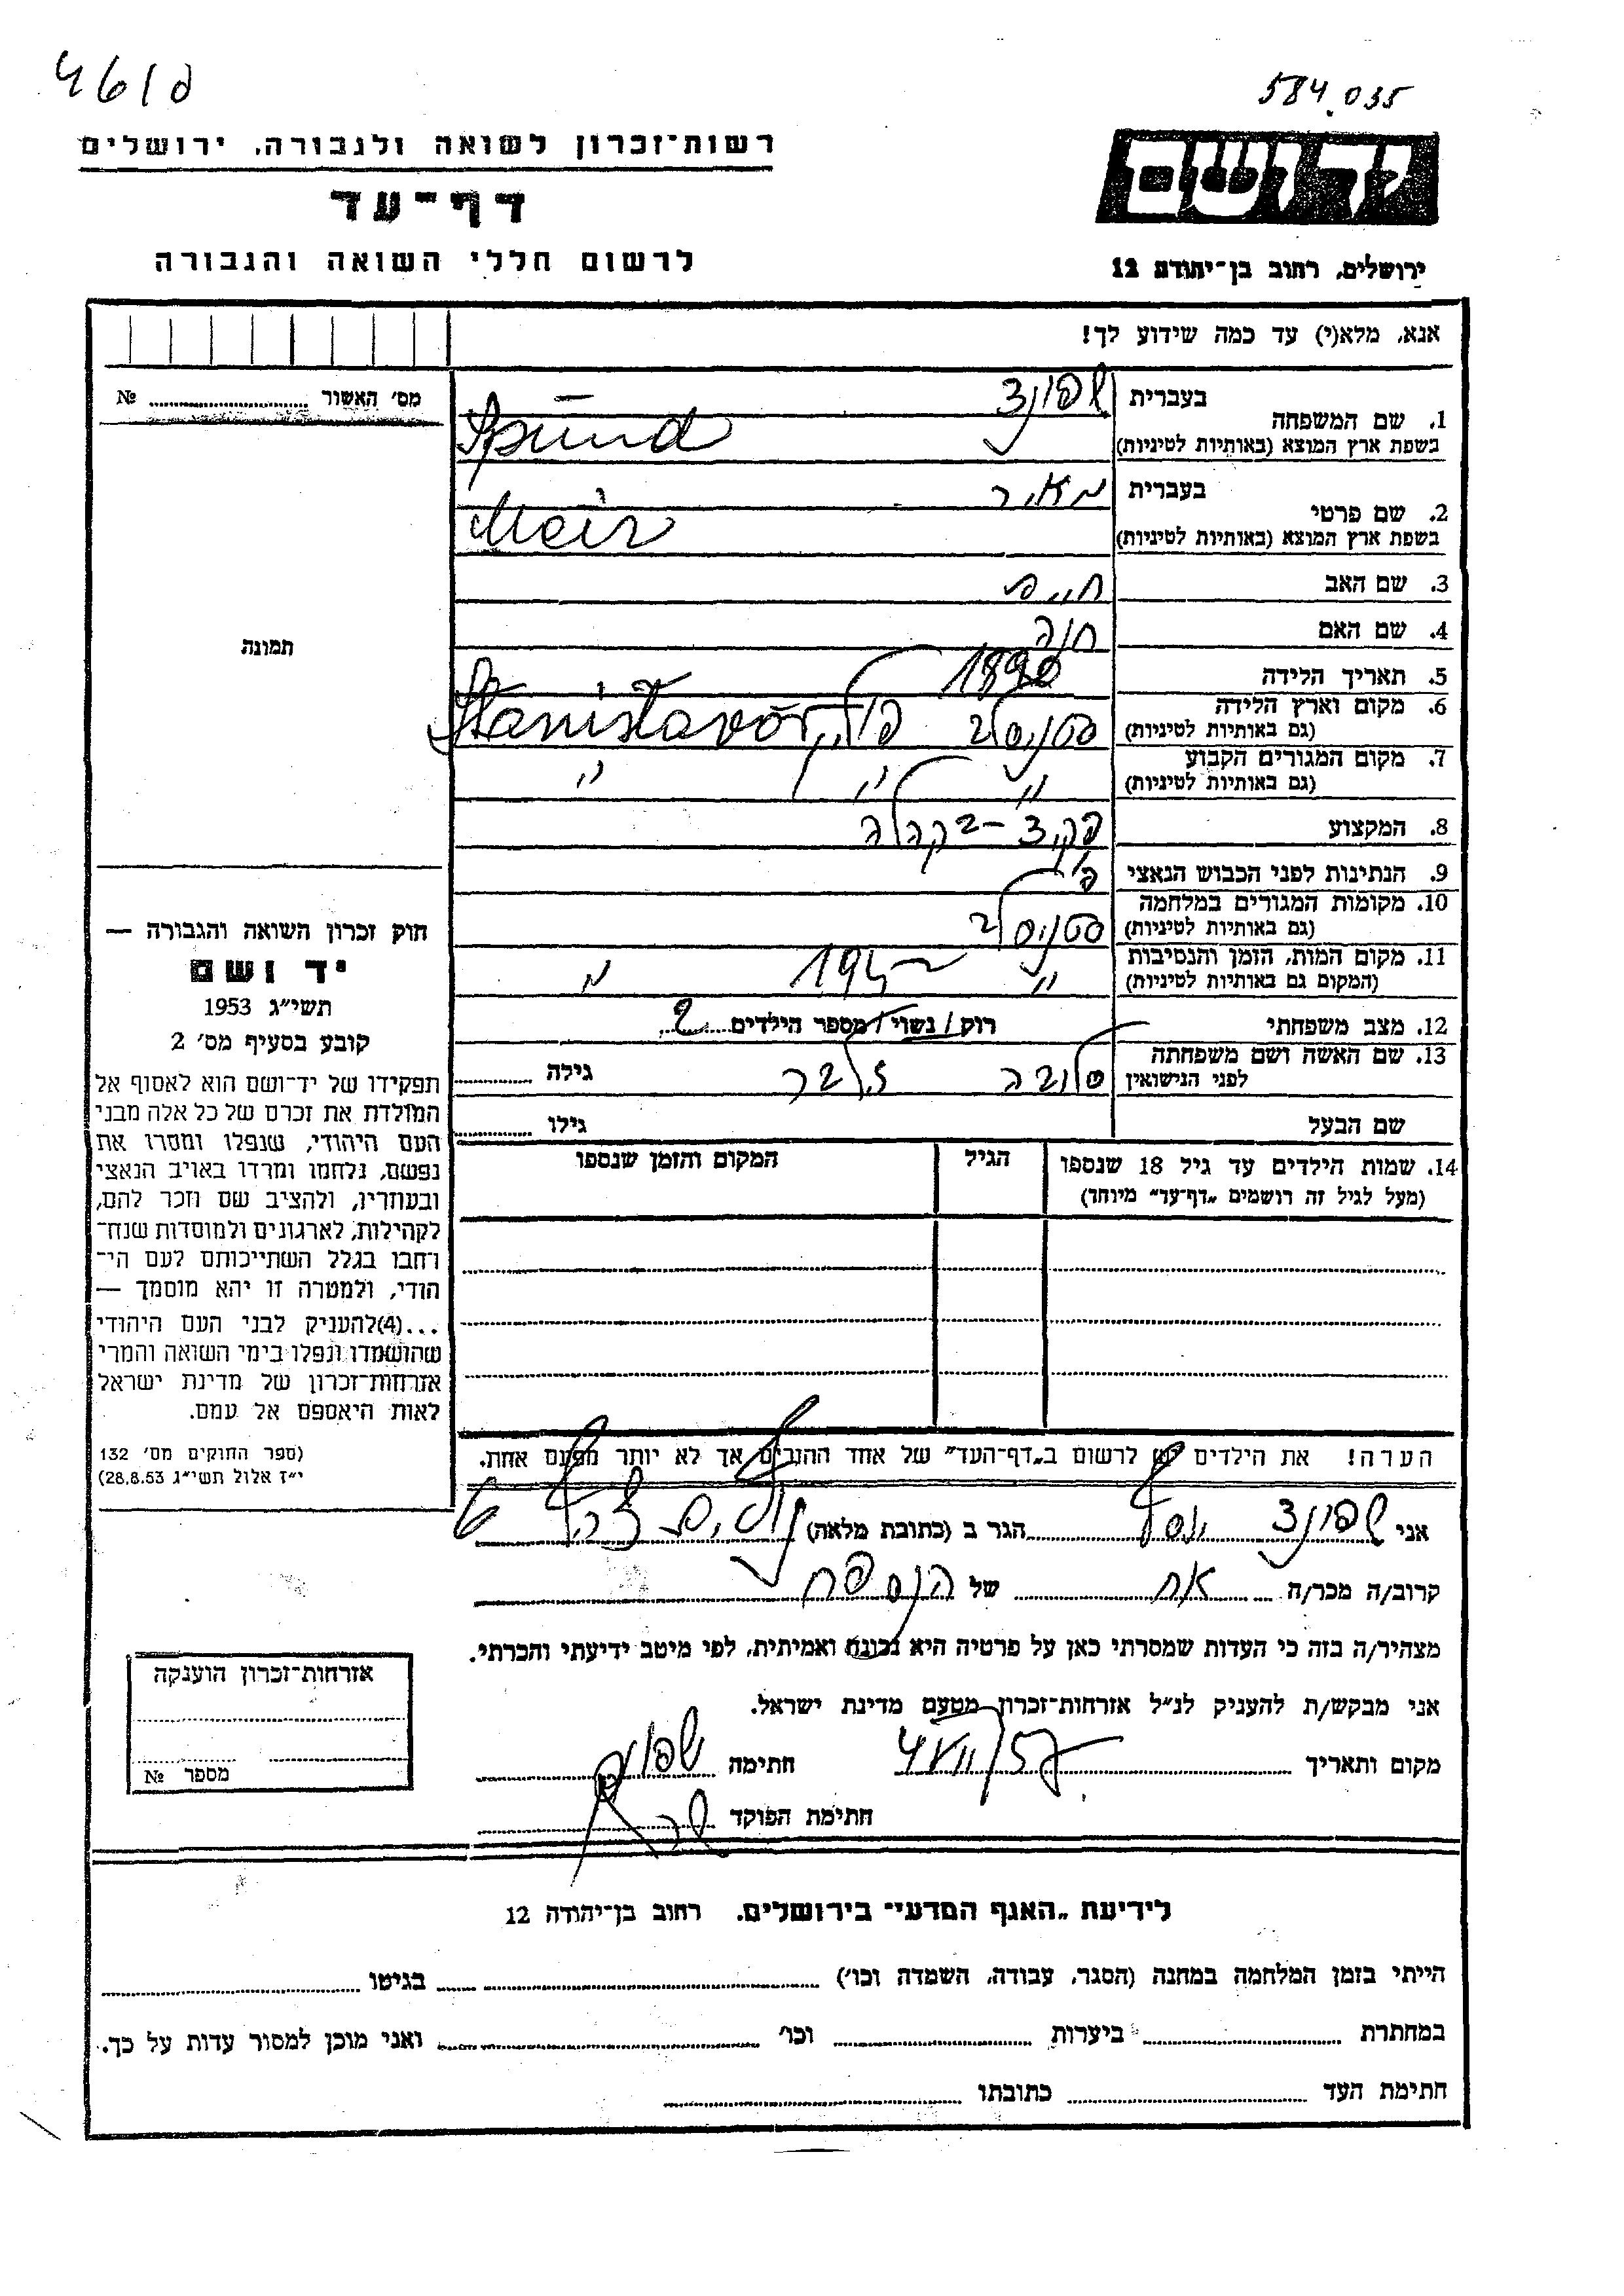 461ם
584.035
רשות־זכרון לשואה ולגבורה, ירושלים
דף־עד
לרשום חללי השואה והגבורה
ידושם
ירושלים, רחוב בן־יהודה 12
אנא, מלא(י) עד כמה שידוע לך!
מס׳ האשור № 
בעברית שפונד
1. שם המשפחה
בשפת ארץ המוצא (באותיות לטיניות) Spünd
בעברית מאיר
2. שם פרטי
בשפת ארץ המוצא (באותיות לטיניות) Meir
3. שם האב חיים
4. שם האם חנה
תמונה
5. תאריך הלידה 1890
6. מקום וארץ הלידה
(גם באותיות לטיניות) סטניסלב פולין Stanisławów
7. מקום המגורים הקבוע
(גם באותיות לטיניות) " " "
8. המקצוע פקיד - בקהלה
9. הנתינות לפני הכבוש הנאצי פול׳
10. מקומות המגורים במלחמה
(גם באותיות לטיניות) סטניסלב
11. מקום המות, הזמן והנסיבות
(המקום גם באותיות לטיניות) " 194
12. מצב משפחתי רוק / נשוי / מספר הילדים 2
13. שם האשה ושם משפחתה
לפני הנישואין גילה
שם הבעל גילו
14. שמות הילדים עד גיל 18 שנספו הגיל המקום והזמן שנספו
(מעל לגיל זה רושמים „דף־עד” מיוחד)
הערה! את הילדים יש לרשום ב„דף־העד” של אחד ההורים אך לא יותר מפעם אחת.
חוק זכרון השואה והגבורה —
יד ושם
תשי״ג 1953
קובע בסעיף מס׳ 2
תפקידו של יד־ושם הוא לאסוף אל
המולדת את זכרם של כל אלה מבני
העם היהודי, שנפלו ומסרו את
נפשם, נלחמו ומרדו באויב הנאצי
ובעוזריו, ולהציב שם וזכר להם,
לקהילות, לארגונים ולמוסדות שנח־
רחבו בגלל השתייכותם לעם הי־
הודי, ולמטרה זו יהא מוסמך —
...(4)להעניק לבני העם היהודי
שהושמדו ונפלו בימי השואה והמרי
אזרחות־זכרון של מדינת ישראל
לאות היאספם אל עמם.
(ספר החוקים מס׳ 132
י״ז אלול תשי״ג 28.8.53)
אני שפונד יוסף הגר ב (כתובת מלאה)
קרוב/ה מכר/ה אח של הנספה
מצהיר/ה בזה כי העדות שמסרתי כאן על פרטיה היא נכונה ואמיתית, לפי מיטב ידיעתי והכרתי.
אני מבקש/ת להעניק לנ״ל אזרחות־זכרון מטעם מדינת ישראל.
מקום ותאריך חתימה
חתימת הפוקד
אזרחות־זכרון הוענקה
מספר №
לידיעת „האגף המדעי” בירושלים. רחוב בן־יהודה 12
הייתי בזמן המלחמה במחנה (הסגר, עבודה, השמדה וכו׳) בגיטו
במחתרת ביערות וכו׳ ואני מוכן למסור עדות על כך.
חתימת העד כתובתו